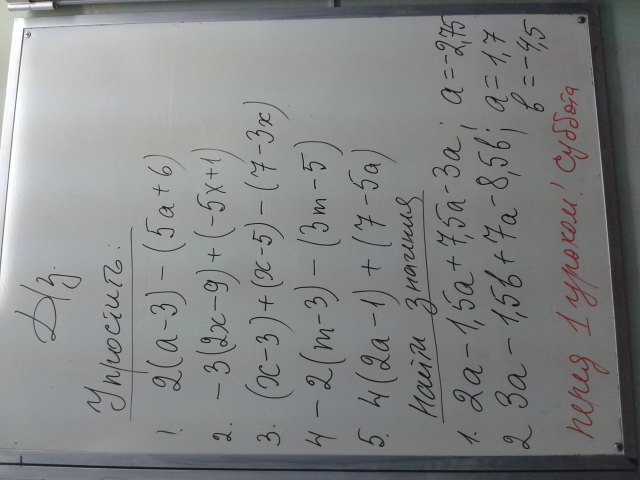 Д/з.
Упростить:
1. 2(a-3)-(5a+6)
2. -3(2x-9)+(-5x+1)
3. (x-3)+(x-5)-(7-3x)
4 -2(m-3)-(3m-5)
5. 4(2a-1)+(7-5a)
Найти значения
1. 2a-1,5a+7,5a-3a; a=-2,75
2 3a-1,5b+7a-8,5b; a=1,7
b=-4,5
перед 1 уроком! суббота